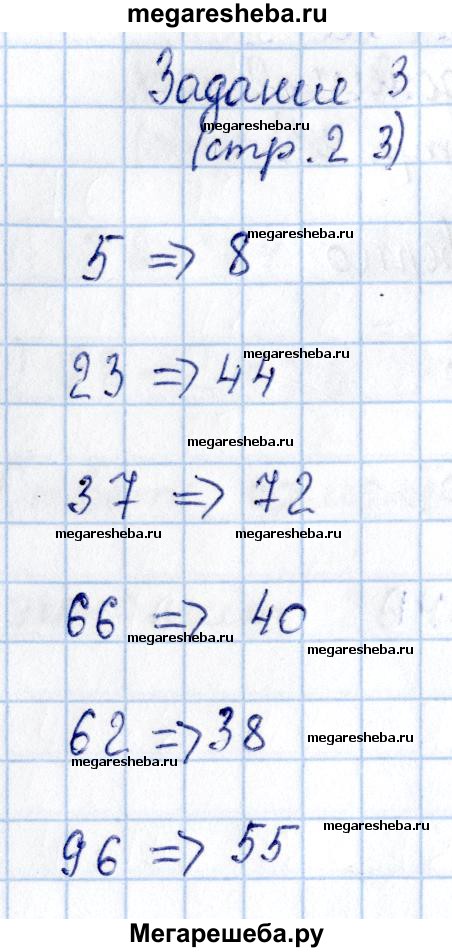 megaresheba.ru
Задание 3
megaresheba.ru
(стр. 23)
megaresheba.ru
5 => 8
megaresheba.ru
23 => 44
megaresheba.ru
37 => 72
megaresheba.ru megaresheba.ru
66 => 40
megaresheba.ru
megaresheba.ru
62 => 38
megaresheba.ru
megaresheba.ru
megaresheba.ru
96 => 55
Мегарешеба.ру